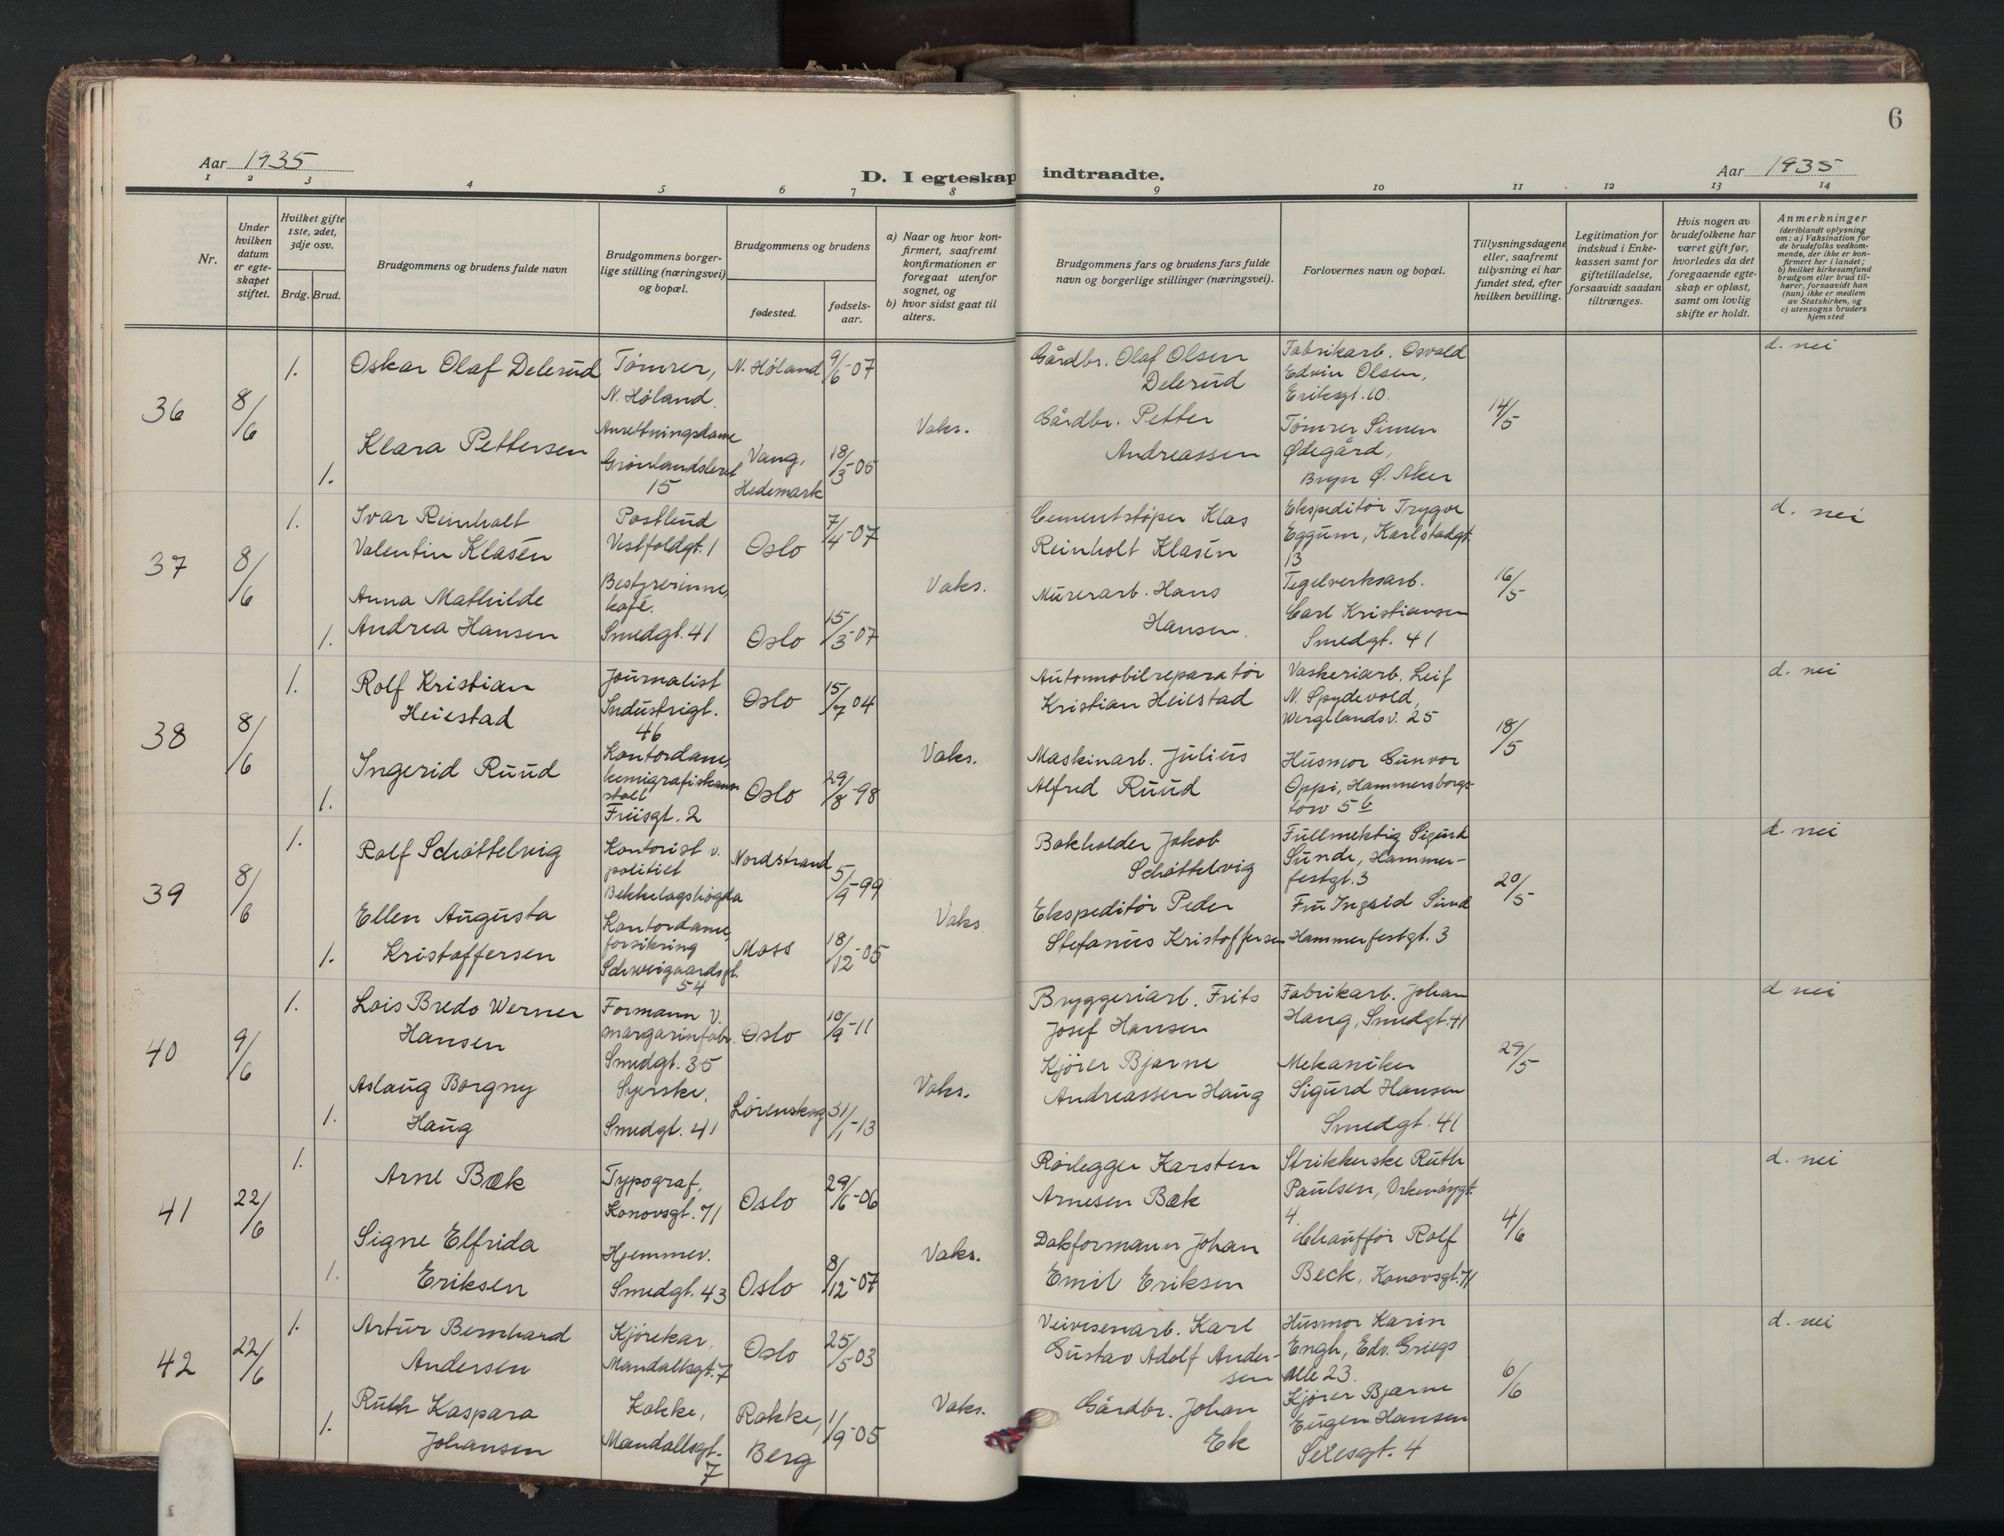 6
Aar 1935
D. I egteskap indtraadte.
Aar 1935
1 2 3 4 5 6 7 8 9 10 11 12 13 14
Nr.
Under hvilken datum er egte- skapet stiftet.
Hvilket gifte 1ste, 2det, 3dje osv.
Brdg. Brud.
Brudgommens og brudens fulde navn
Brudgommens borger- lige stilling (næringsvei) og bopæl.
Brudgommens og brudens
fødested.
fødsels- aar.
a) Naar og hvor kon- firmert, saafremt konfirmationen er foregaat utenfor sognet, og
b) hvor sidst gaat til alters.
Brudgommens fars og brudens fars fulde navn og borgerlige stillinger (næringsvei).
Forlovernes navn og bopæl.
Tillysningsdagene eller, saafremt tillysning ei har fundet sted, efter hvilken bevilling.
Legitimation for indskud i Enke- kassen samt for giftetilladelse, forsaavidt saadan tiltrænges.
Hvis nogen av brudefolkene har været gift før, hvorledes da det foregaaende egte- skap er opløst, samt om lovlig skifte er holdt.
Anmerkninger (deriblandt oplysning om: a) Vaksination for de brudefolks vedkom- mende, der ikke er kon- firmert her i landet; b) hvilket kirkesamfund brudgom eller brud til- hører, forsaavidt han (hun) ikke er medlem av Statskirken, og c) utensogns bruders hjemsted
36 8/6
1. Oskar Olaf Delerud Tømrer, N. Høland. N. Høland 9/6-07
Gårdbr. Olaf Olsen Delerud
Fabrikarb. Osvald Edvin Olsen, Eriksgt. 10.
d. nei
Vaks. 14/5
1. Klara Pettersen Anretningsdame Grønlandsleret 15 Vang, Hedemark 18/3-05
Gårdbr. Petter Andreassen
Tømrer Simen Ødegård, Bryn Ø. Aker
37 8/6
1. Ivar Reinholt Valentin Klasén Postbud Vestfoldgt. 1 Oslo 7/4-07
Cementstøper Klas Reinholt Klasén
Ekspeditør Trygve Eggum, Karlstadgt. 13
d. nei
Vaks. 16/5
1. Anna Mathilde Andrea Hansen Bestyrerinne, kafé. Smedgt. 41 Oslo 15/3-07
Murerarb. Hans Hansen.
Tegelverksarb. Carl Kristiansen Smedgt. 41
38 8/6
1. Rolf Kristian Heiestad Journalist Industrigt. 46 Oslo 15/7 04
Automobilreparatør Kristian Heiestad
Vaskeriarb. Leif N. Spydevold, Wergelandsv. 25
d. nei
Vaks. 18/5
1. Ingerid Ruud Kontordame, Friisgt. 2 Oslo 29/8-98
Maskinarb. Julius Alfred Ruud
Husmor Gunvor Oppi, Hammersborgs- torv 5 b
39 8/6
1. Rolf Schøttelvig Kontorist v. politiet Bekkelagshøgda Nordstrand 5/9-99
Bokholder Jakob Schøttelvig
Fullmektig Sigurd Sunde, Hammer- festgt. 3
d. nei
Vaks. 20/5
1. Ellen Augusta Kristoffersen Kontordame, forsikring Schweigaardsgt. 54 Moss 18/12-05
Ekspeditør Peder Stefanus Kristoffersen
Fru Ingrid Sund Hammerfestgt. 3
40 9/6
1. Lois Bredo Werner Hansen Formann v. margarinfabr. Smedgt. 35 Oslo 10/9-11
Bryggeriarb. Frits Josef Hansen
Fabrikarb. Johan Haug, Smedgt. 41
d nei
Vaks. 29/5
1. Aslaug Borgny Haug Syerske, Smedgt. 41 Lørenskog 31/1-13
Kjører Bjarne Andreassen Haug
Mekaniker Sigurd Hansen Smedgt. 41
41 22/6
1. Arne Bæk Typograf, Konovsgt. 71 Oslo 29/6-06
Rørlegger Karsten Arnesen Bæk
Strikkerske Ruth Paulsen, Orknøygt. 4.
d. nei
Vaks. 4/6
1. Signe Elfrida Eriksen Hjemmev. Smedgt. 43 Oslo 8/12-07
Dokformann Johan Emil Eriksen
Chauffør Rolf Beck, Konovsgt. 71
42 22/6
1. Artur Bernhard Andersen Kjørekar, Mandallsgt. 7 Oslo 25/5 03
Veivesenarb. Karl Gustav Adolf Ander- sen
Husmor Karin Engh, Edv. Griegs Allé 23.
d. nei
Vaks. 6/6
1. Ruth Kaspara Johansen Kokke, Mandallsgt. 7 Rokke, Berg 1/9-05
Gårdbr. Johan Ek
Kjører Bjarne Eugen Hansen Selesgt. 4